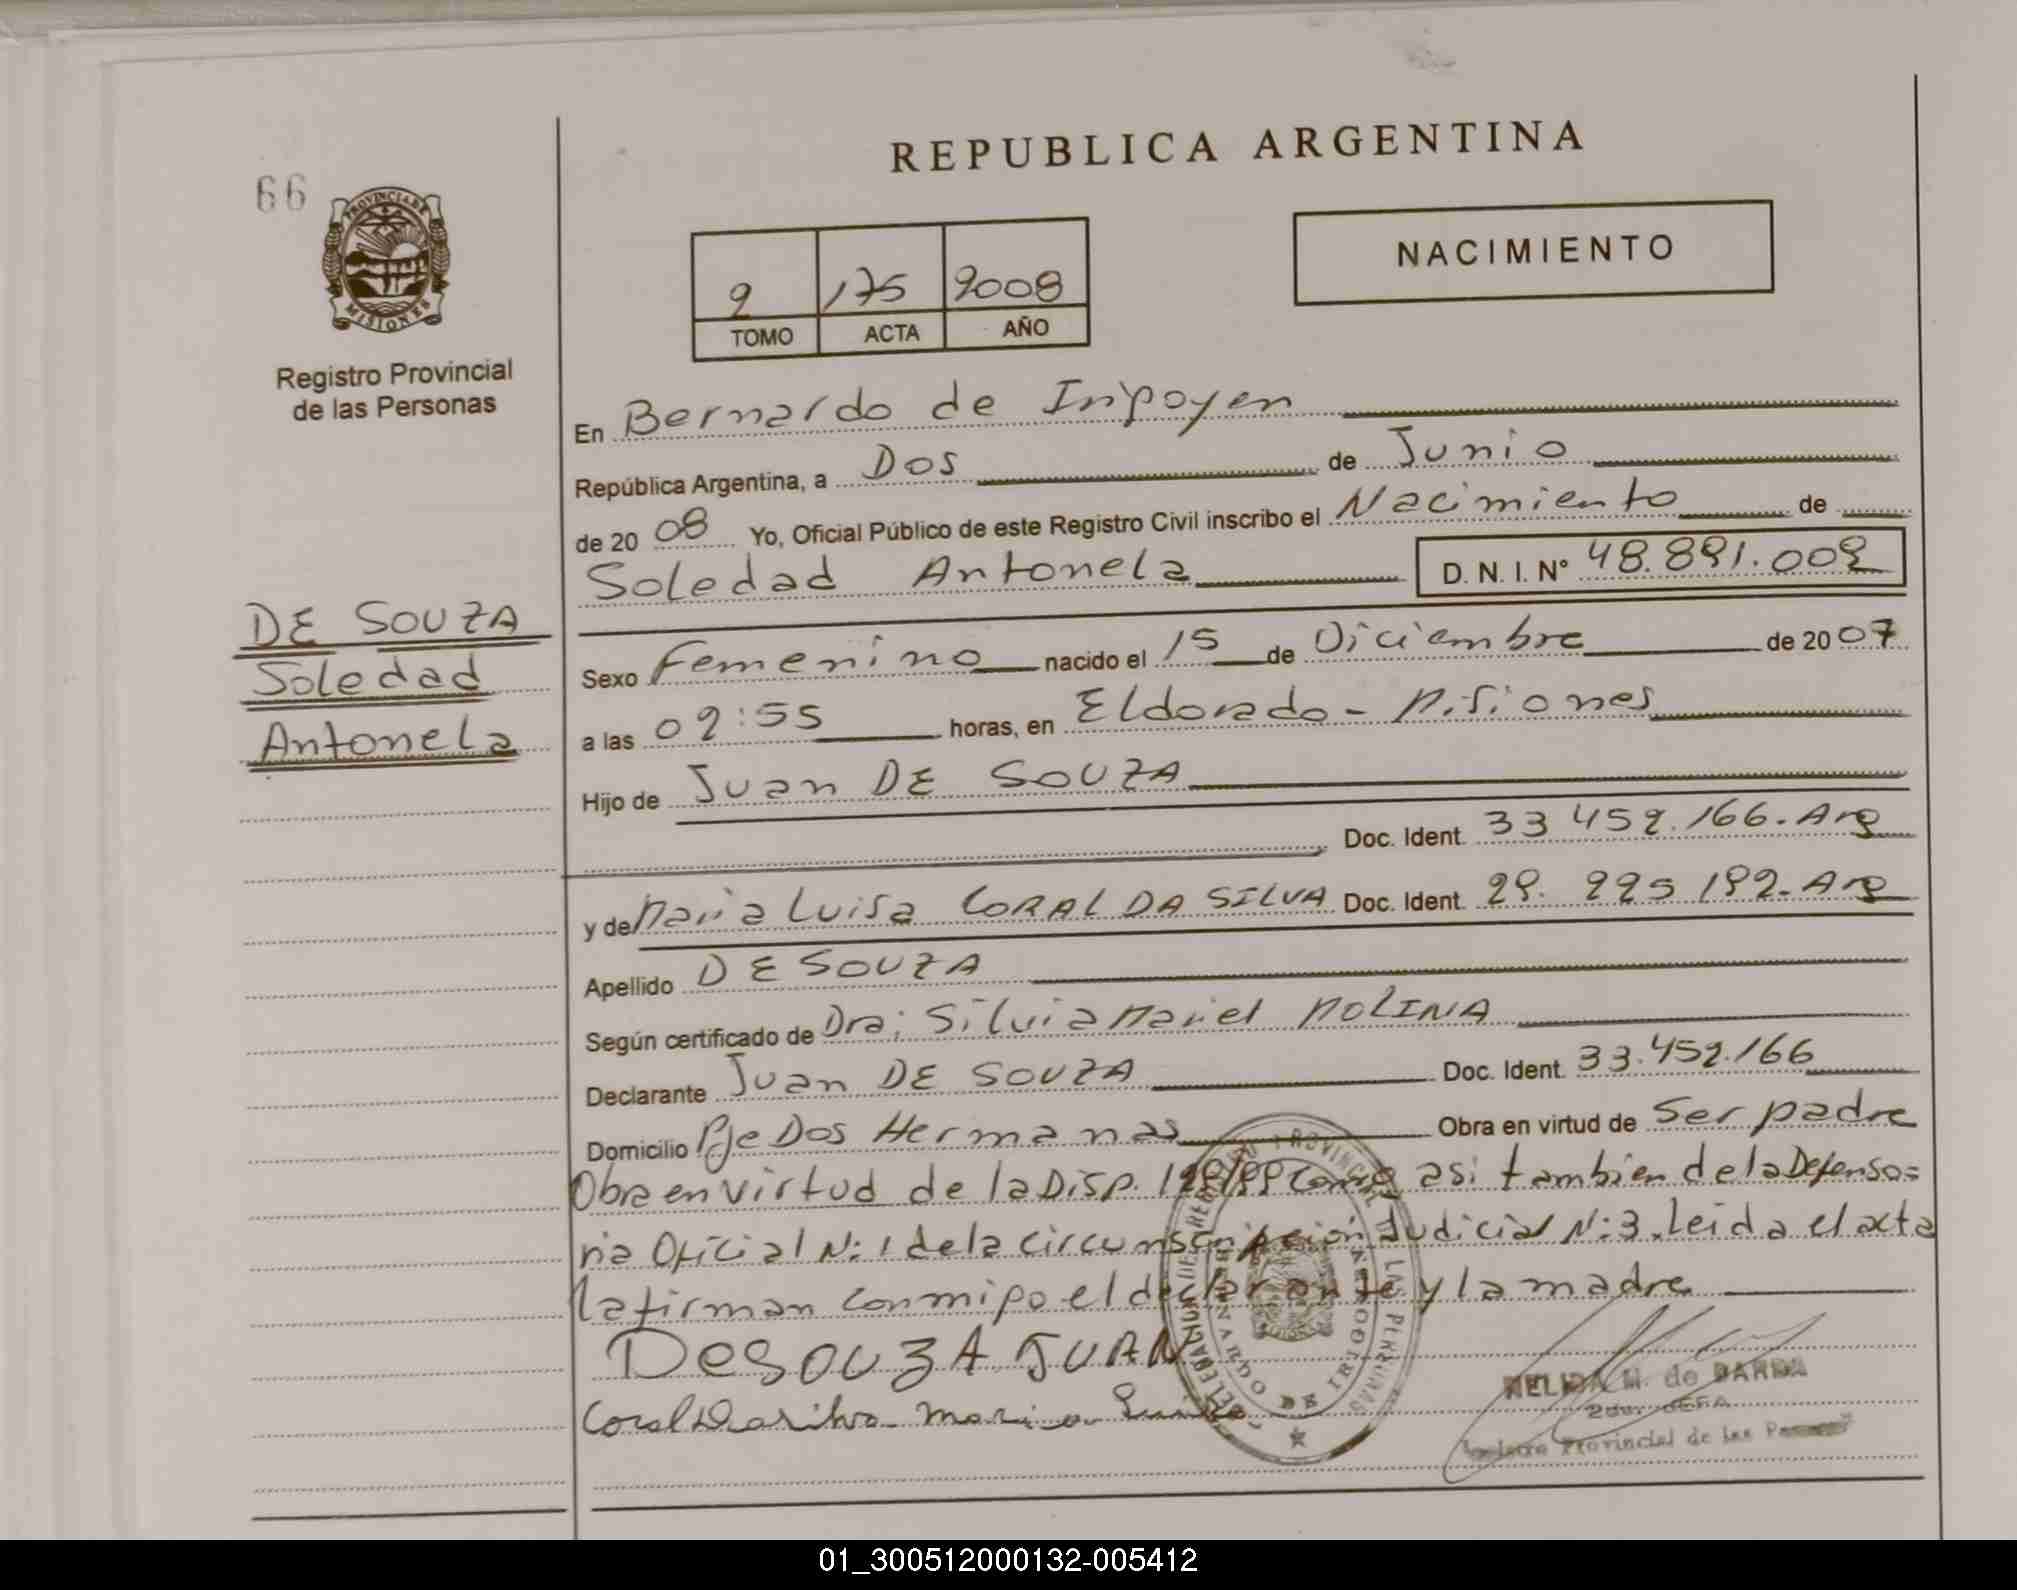 66
PROVINCIA DE
MISIONES
Registro Provincial
de las Personas
DE SOUZA
Soledad
Antonela
REPUBLICA ARGENTINA
NACIMIENTO
2 175 2008
TOMO ACTA AÑO
En Bernardo de Irigoyen
República Argentina, a Dos de Junio
de 2008 Yo, Oficial Público de este Registro Civil inscribo el Nacimiento de
Soledad Antonela D. N. I. N°
Sexo Femenino nacido el 15 de Diciembre de 2007
a las 02:55 horas, en Eldorado - Misiones
Hijo de Juan DE SOUZA
Doc. Ident. 33 452.166. Arg
y de Maria Luisa CORAL DA SILVA Doc. Ident. Arg
Apellido DE SOUZA
Según certificado de Dra: Silvia Mariel MOLINA
Declarante Juan DE SOUZA Doc. Ident. 33.452.166
Domicilio Pje Dos Hermanas Obra en virtud de Ser padre
Obra en virtud de la Disp. asi tambien de la Defenso=
ria Oficial N: 1 de la circunscripción Judicial N: 3. Leida el acta
la firman conmigo el declarante y la madre
DeSOUZA JUAN
Coral Da silva Maria Luisa
NELIDA M. de BARDA
Registro Provincial de las Personas
01_300512000132-005412